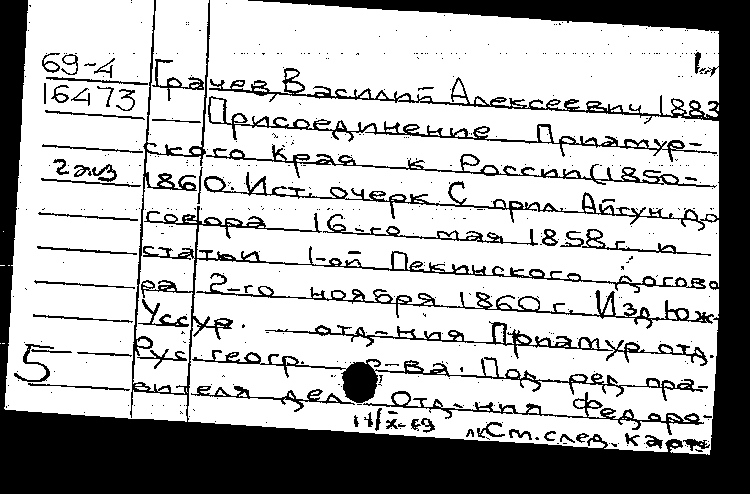 69-4
Грачев, Василий Алексеевич, 1883
16473
Присоединение Приамур-
ского Края к России (1850-
2 экз
1860. Ист. очерк С прил. Айгун. до
говора 16-го мая 1858 г. и
статьи 1-ой Пекинского догово
ра 2-го ноября 1860 г. Изд. Юж-
Уссур. отд-ния Приамур. отд.
Рус. геогр. о-ва. Под ред пра-
5
вителя дел Отд-ния Федора-
14/X-69 См. след. карт